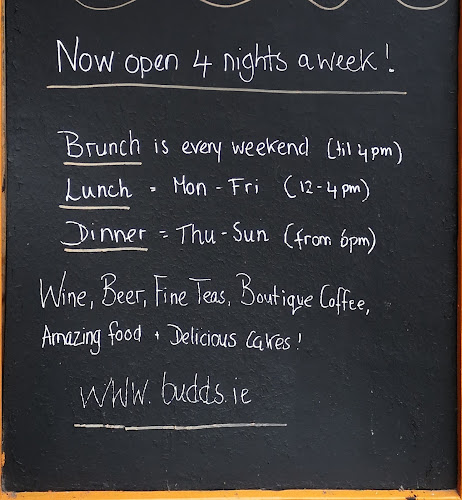 Now open 4 nights a week!
Brunch is every weekend (til 4pm)
Lunch = Mon - Fri (12-4pm)
Dinner = Thu - Sun (from 6pm)
Wine, Beer, Fine Teas, Boutique Coffee,
Amazing food + Delicious Cakes!
www.budds.ie